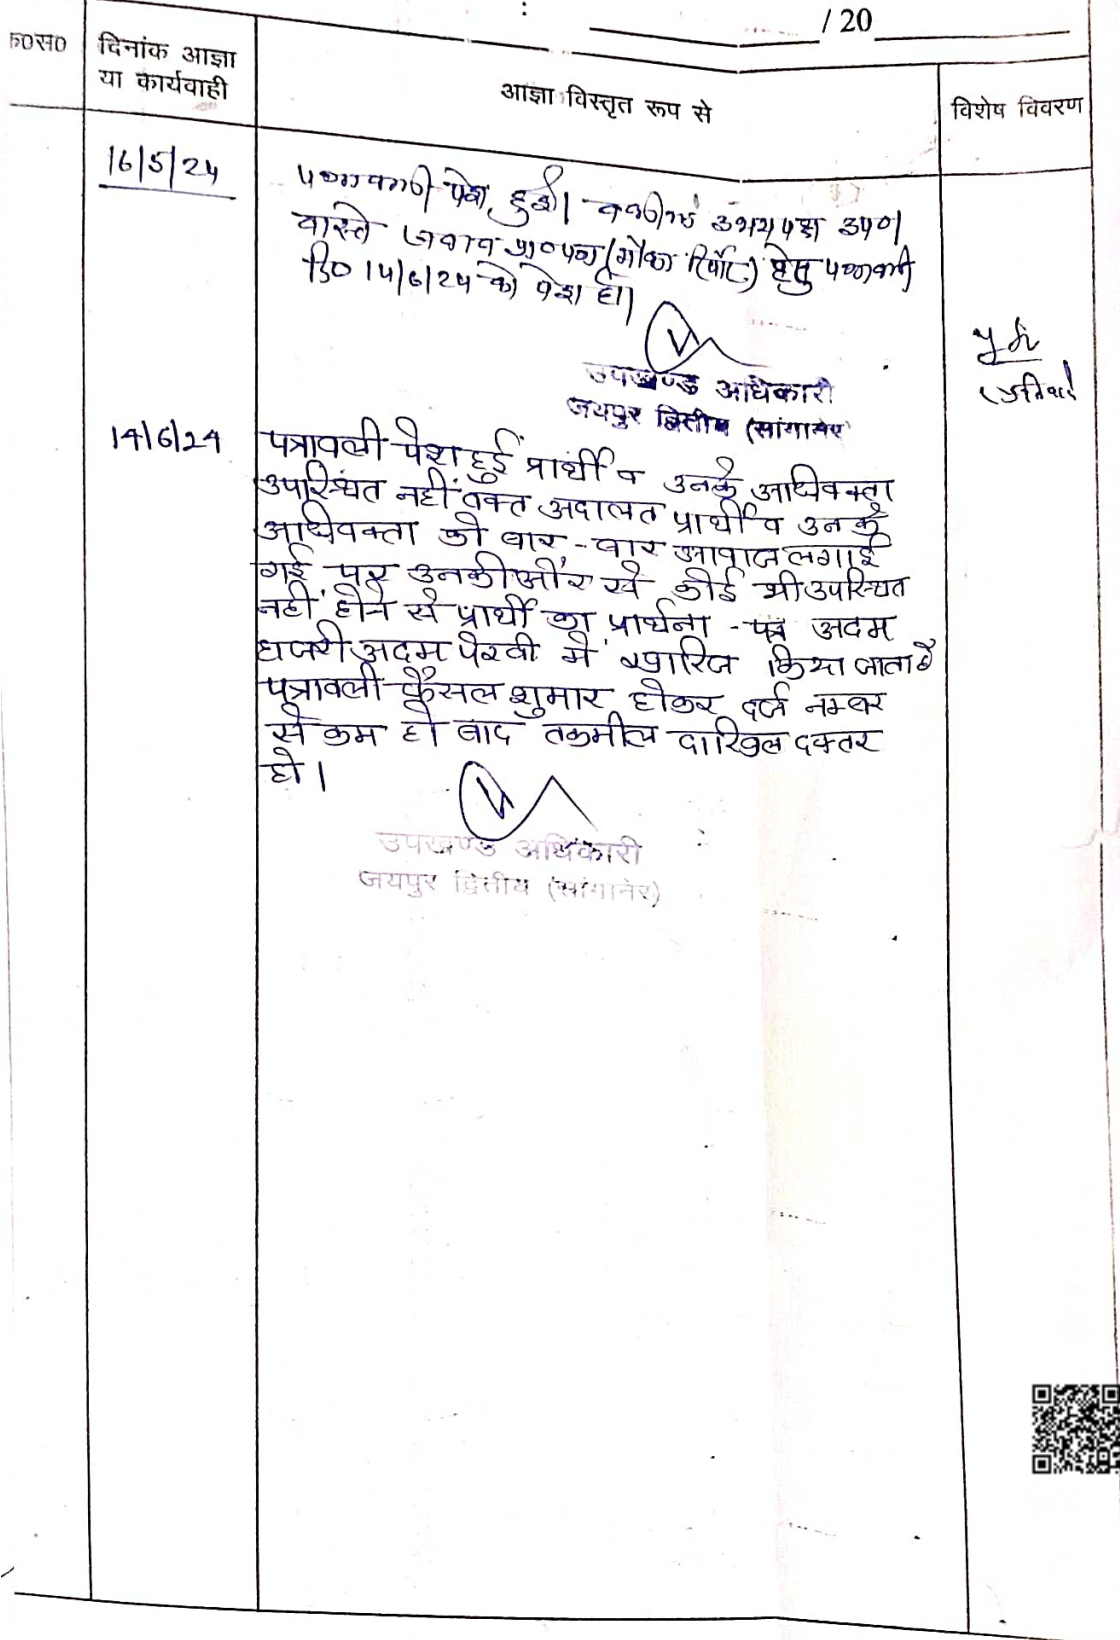 / 20
क०स० दिनांक आज्ञा या कार्यवाही आज्ञा विस्तृत रूप से विशेष विवरण
16/5/24
पत्रावली पेश हुई। वकील उभयपक्ष उप०।
वास्ते जवाब प्रा०पत्र (मौका रिपोर्ट) हेतु पत्रावली
दि० 14/6/24 को पेश हो।
उपखण्ड अधिकारी
जयपुर द्वितीय (सांगानेर
14/6/24
पत्रावली पेश हुई प्रार्थी व उनके अधिवक्ता
उपस्थित नहीं वक्त अदालत प्रार्थी व उनके
अधिवक्ता को बार-बार आवाज लगाई
गई पर उनकी ओर से कोई भी उपस्थित
नहीं होने से प्रार्थी का प्रार्थना-पत्र अदम
हाजरी अदम पैरवी में खारिज किया जाता है
पत्रावली फैसल शुमार होकर दर्ज नम्बर
से कम हो बाद तकमील दाखिल दफ्तर
हो।
उपखण्ड अधिकारी
जयपुर द्वितीय (सांगानेर)